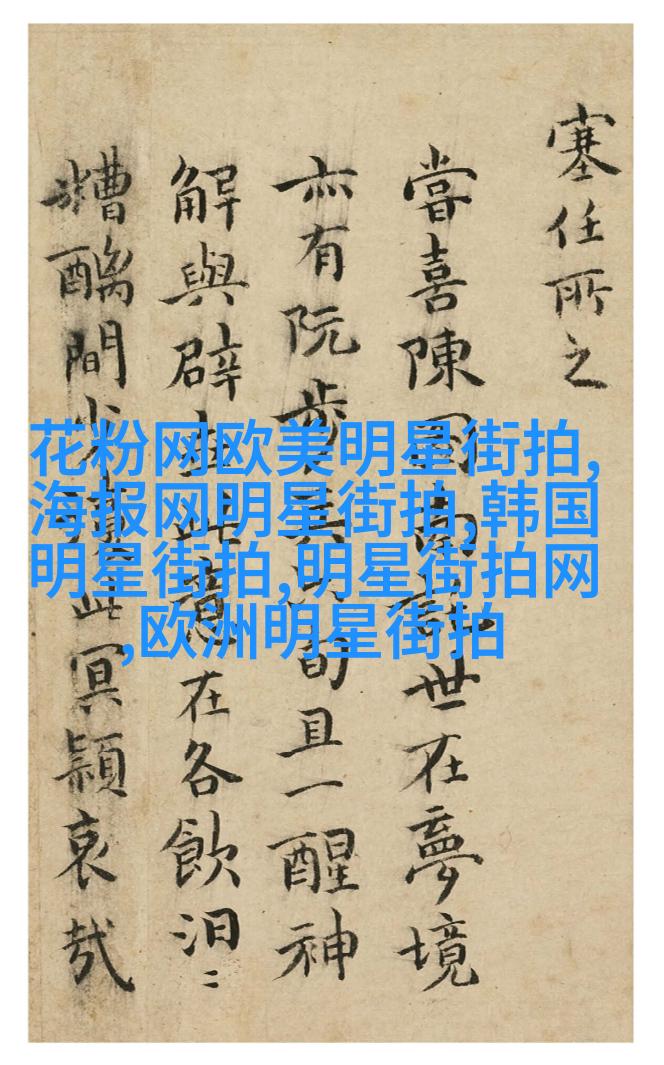 塞任所之
嘗喜陳圖南世在夢境
亦有阮步兵旬且一醒神
解與辟此意在各飲汩〻
糟醨間此冥穎哀哉
花粉网欧美明星街拍,
海报网明星街拍,韩国
明星街拍,明星街拍网
,欧洲明星街拍